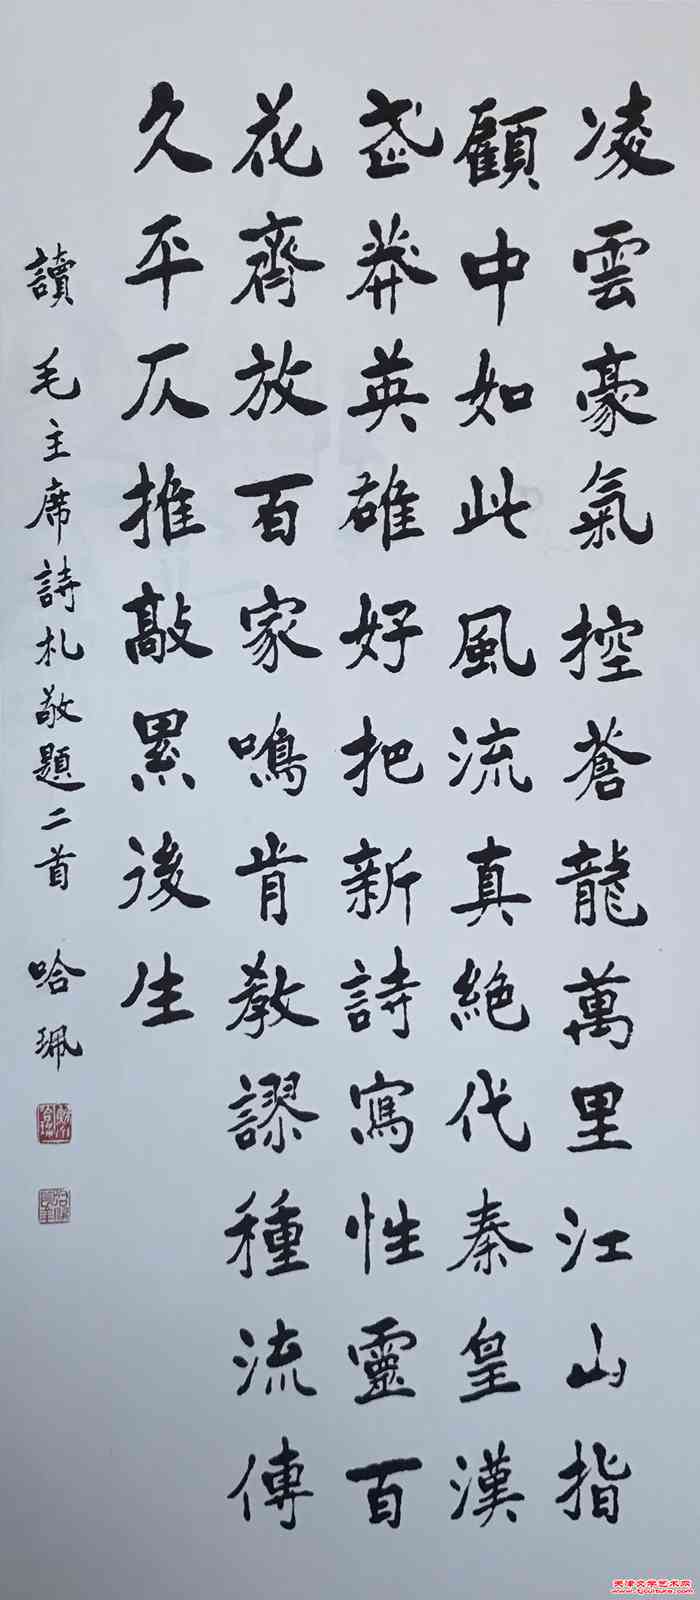 凌雲豪氣控蒼龍萬里江山指
顧中如此風流真絶代秦皇漢
武莽英雄好把新詩寫性靈百
花齊放百家鳴肯教謬種流傳
久平仄推敲累後生
讀毛主席詩札敬題二首 哈珮
天津文学艺术网
www.tjculture.com